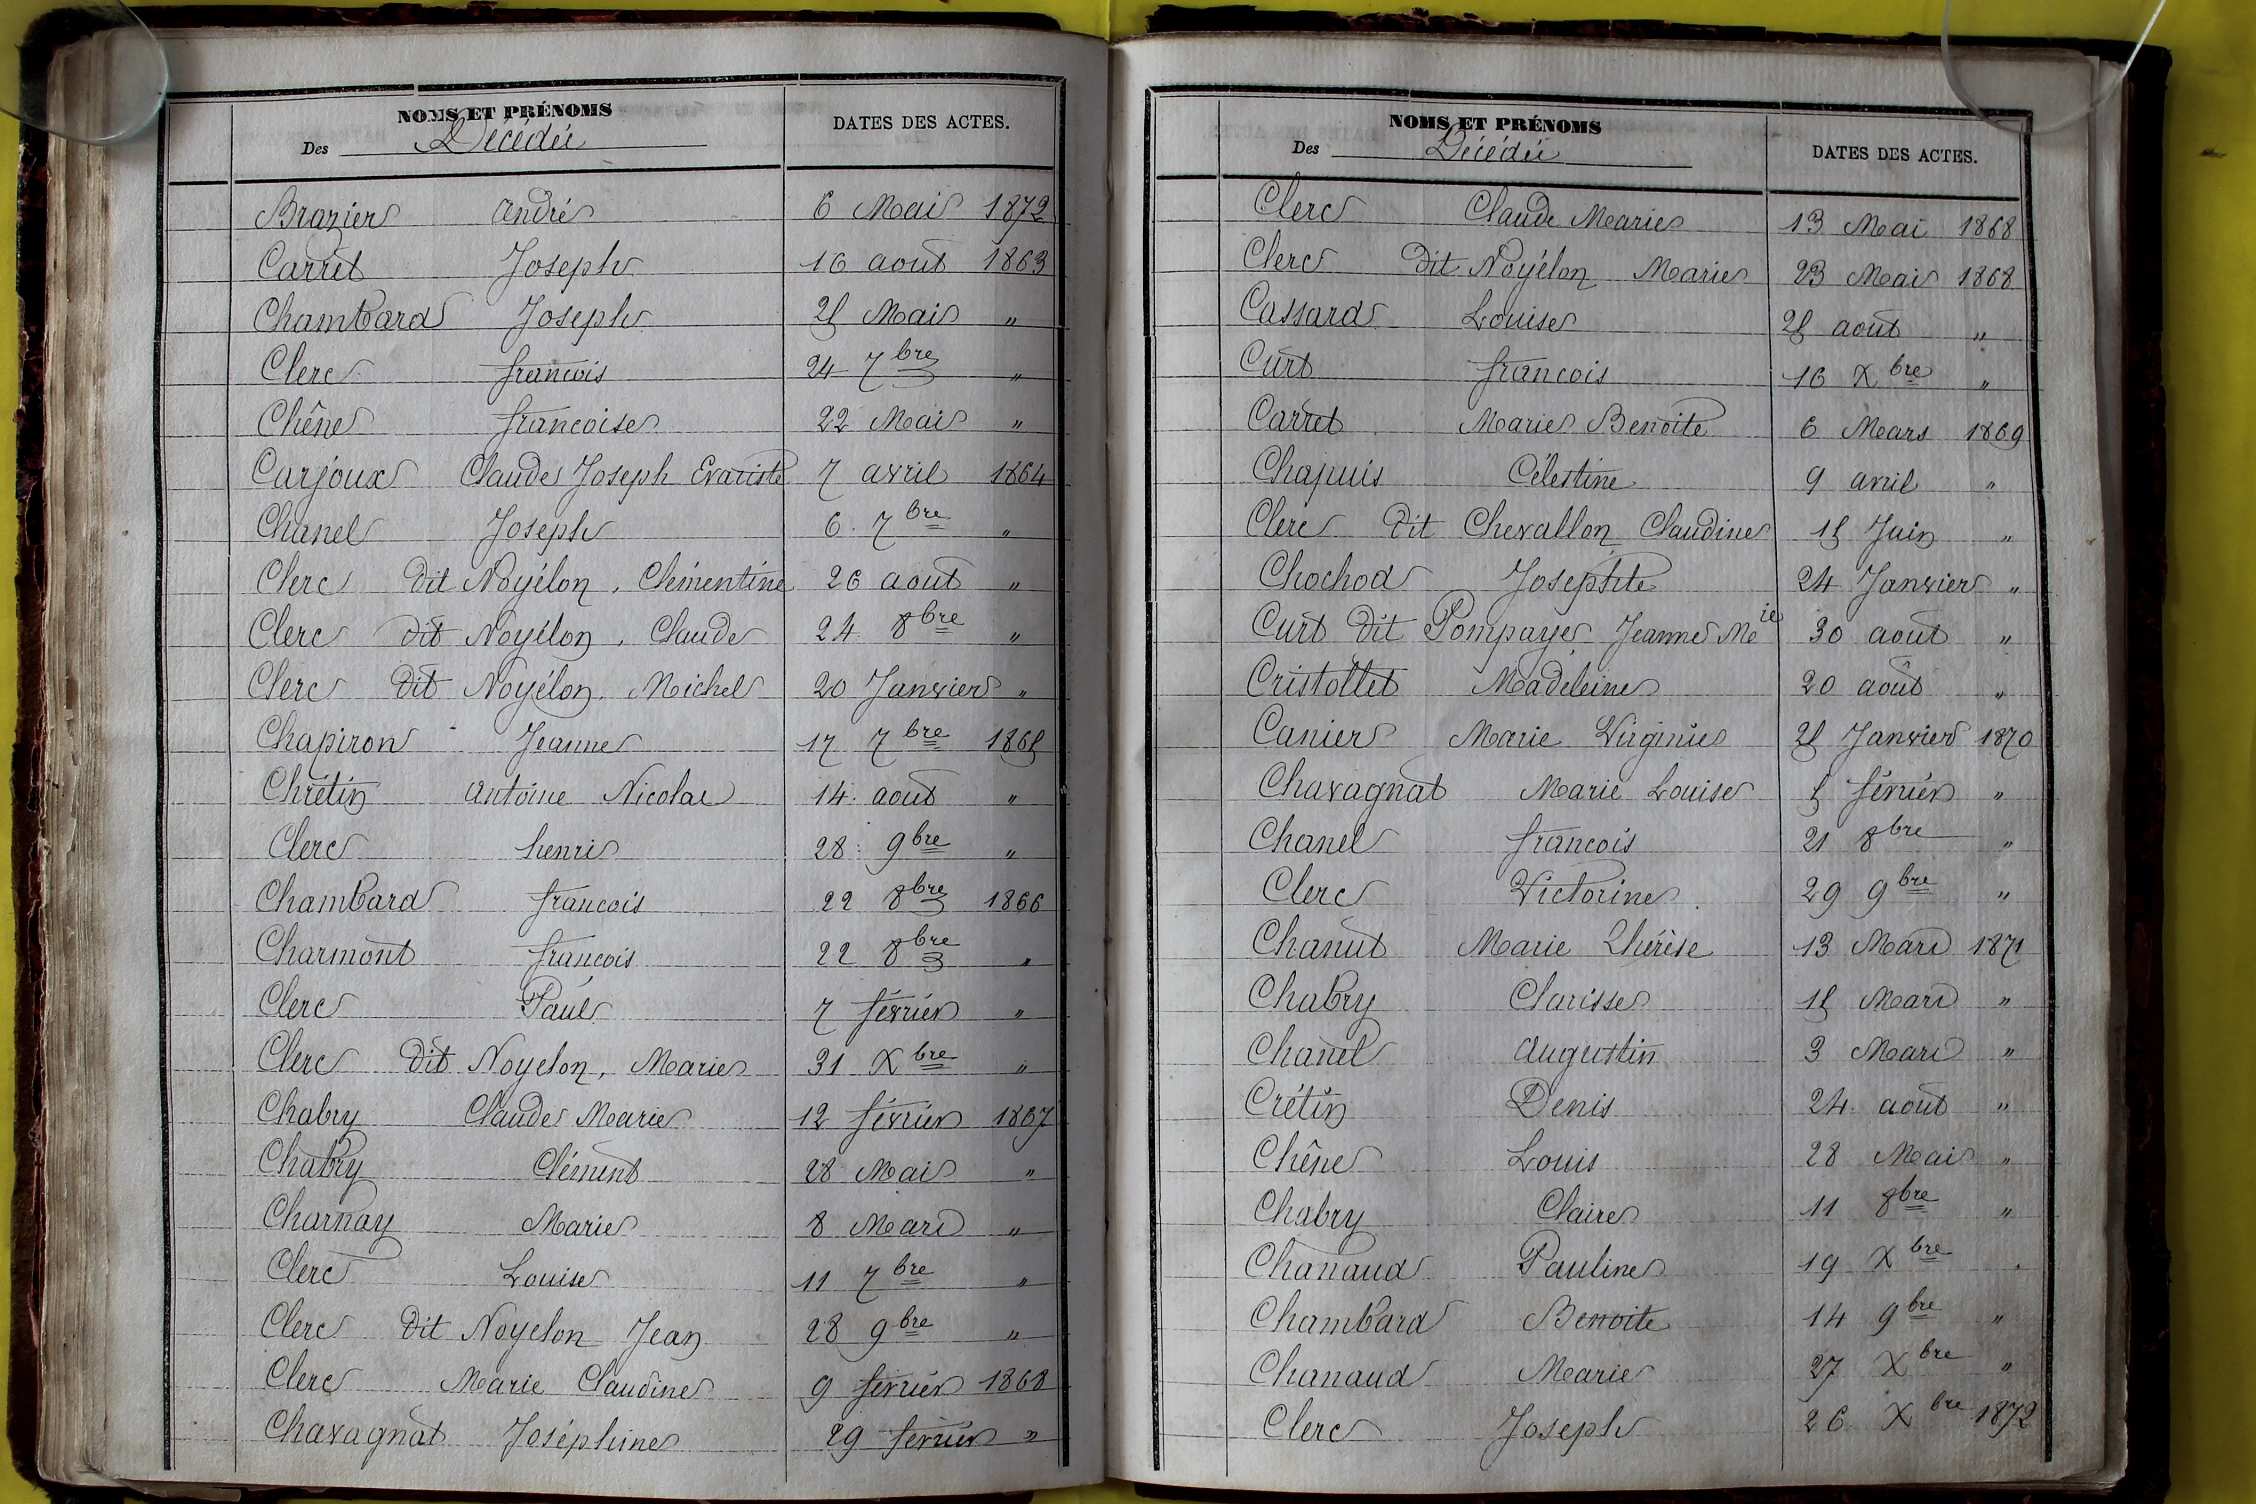 NOMS ET PRÉNOMS
Des Décédés
DATES DES ACTES.
Brazier André 6 Mai 1872
Carret Joseph 16 aout 1863
Chambard Joseph 25 Mai "
Clerc francois 24 7bre "
Chêne francoise 22 Mai "
Carjoux Claude Joseph Evariste 7 avril 1864
Chanel Joseph 6 7bre "
Clerc dit Noyélon, Clémentine 26 aout "
Clerc dit Noyélon, Claude 24 8bre "
Clerc dit Noyélon. Michel 20 Janvier "
Chapiron Jeanne 17 7bre 1865
Chrétin Antoine Nicolas 14 aout "
Clerc henri 28 9bre "
Chambard francois 22 8bre 1866
Charmont francois 22 8bre "
Clerc Paul 7 février "
Clerc dit Noyelon, Marie 31 Xbre "
Chabry Claude Marie 12 février 1867
Chabry Clément 28 Mai "
Charnay Marie 8 Mars "
Clerc Louise 11 7bre "
Clerc dit Noyelon Jean 28 9bre "
Clerc Marie Claudine 9 février 1868
Chavagnat Joséphine 29 février "
NOMS ET PRÉNOMS
Des Décédés
DATES DES ACTES.
Clerc Claude Marie 13 Mai 1868
Clerc dit Noyélon Marie 23 Mai 1868
Cassard Louise 25 aout "
Curt francois 16 Xbre "
Carret Marie Benoite 6 Mars 1869
Chapuis Célestine 9 avril "
Clerc dit Chevallon Claudine 15 Juin "
Chochod Josephte 24 Janvier "
Curt dit Pompaye Jeanne Mie 30 aout "
Cristollet Madeleine 20 août "
Canier Marie Virginie 25 Janvier 1870
Chavagnat Marie Louise 5 février "
Chanel francois 21 8bre "
Clerc Victorine 29 9bre "
Chanut Marie Thérèse 13 Mars 1871
Chabry Clarisse 15 Mars "
Chanel Augustin 3 Mars "
Crétin Denis 24 aout "
Chêne Louis 28 Mai "
Chabry Claire 11 8bre "
Chanaud Pauline 19 Xbre "
Chambard Benoite 14 9bre "
Chanaud Marie 27 Xbre "
Clerc Joseph 26 Xbre 1872